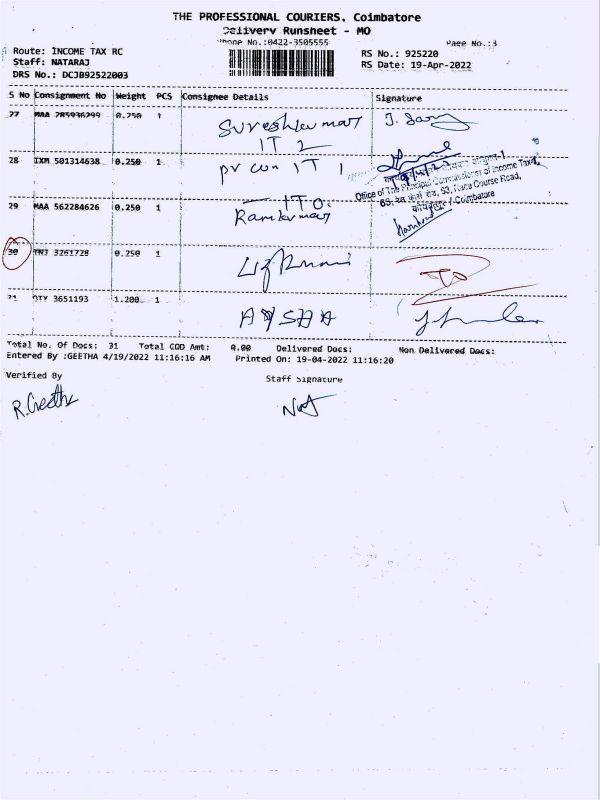 THE PROFESSIONAL COURIERS, Coimbatore
Delivery Runsheet - MO
Phone No.:0422-3505555 Page No.:3
Route: INCOME TAX RC RS No.: 925220
Staff: NATARAJ RS Date: 19-Apr-2022
DRS No.: DCJB92522003
S No Consignment No Weight PCS Consignee Details Signature
27 MAA 285936299 0.250 1 Sureshkumar
IT 2
28 IXM 501314638 0.250 1 pr con IT 1
Office of The Principal Commissioner of Income Tax-1,
63, रेस कोर्स रोड, 63, Race Course Road,
कोयंबतूर / Coimbatore
29 MAA 562284626 0.250 1 ITO.
Ramkumar
30 TNJ 3261728 0.250 1
31 OTY 3651193 1.200 1 AYSHA
Total No. Of Docs: 31 Total COD Amt: 0.00 Delivered Docs: Non Delivered Docs:
Entered By :GEETHA 4/19/2022 11:16:16 AM Printed On: 19-04-2022 11:16:20
Verified By Staff Signature
R. Geetha